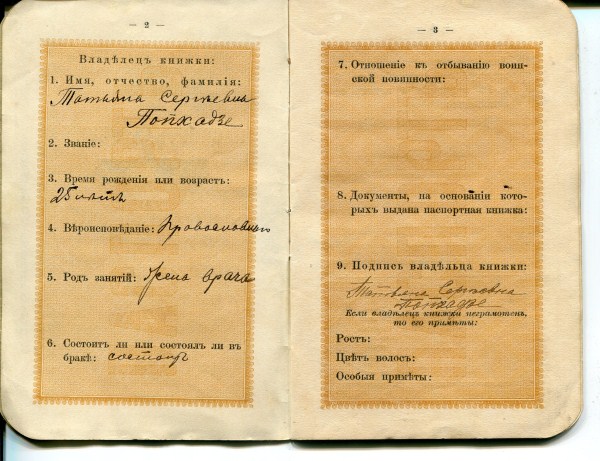 — 2 —
Владѣлецъ книжки:
1. Имя, отчество, фамилія:
Татьяна Сергѣевна
Попхадзе
2. Званіе:
3. Время рожденія или возрастъ:
25 лѣтъ
4. Вѣроисповѣданіе: Православнаго
5. Родъ занятій: Жена врача
6. Состоитъ ли или состоялъ ли въ
бракѣ: состоитъ
— 3 —
7. Отношеніе къ отбыванію воин-
ской повинности:
8. Документы, на основаніи кото-
рыхъ выдана паспортная книжка:
9. Подпись владѣльца книжки:
Татьяна Сергѣевна
Попхадзе
Если владѣлецъ книжки неграмотенъ,
то его примѣты:
Ростъ:
Цвѣтъ волосъ:
Особыя примѣты: